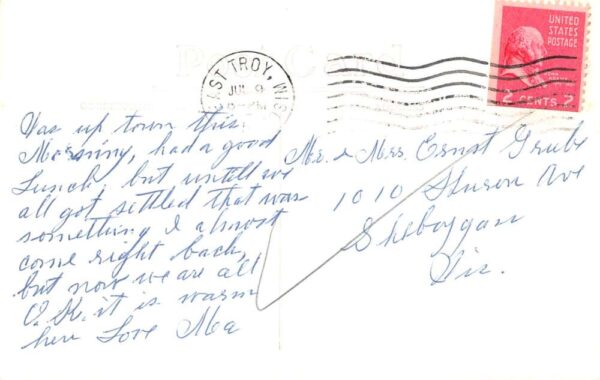 Post Card
EAST TROY, WIS.
JUL 9
UNITED
STATES
POSTAGE
2 CENTS 2
Was up town this
Morning, had a good
Lunch, but untill we
all got settled that was
something I almost
come right back,
but now we are all
O.K. it is warm
here Love Ma
Mr. & Mrs. Ernst Grube
1010 Huron Ave
Sheboygan
Wis.